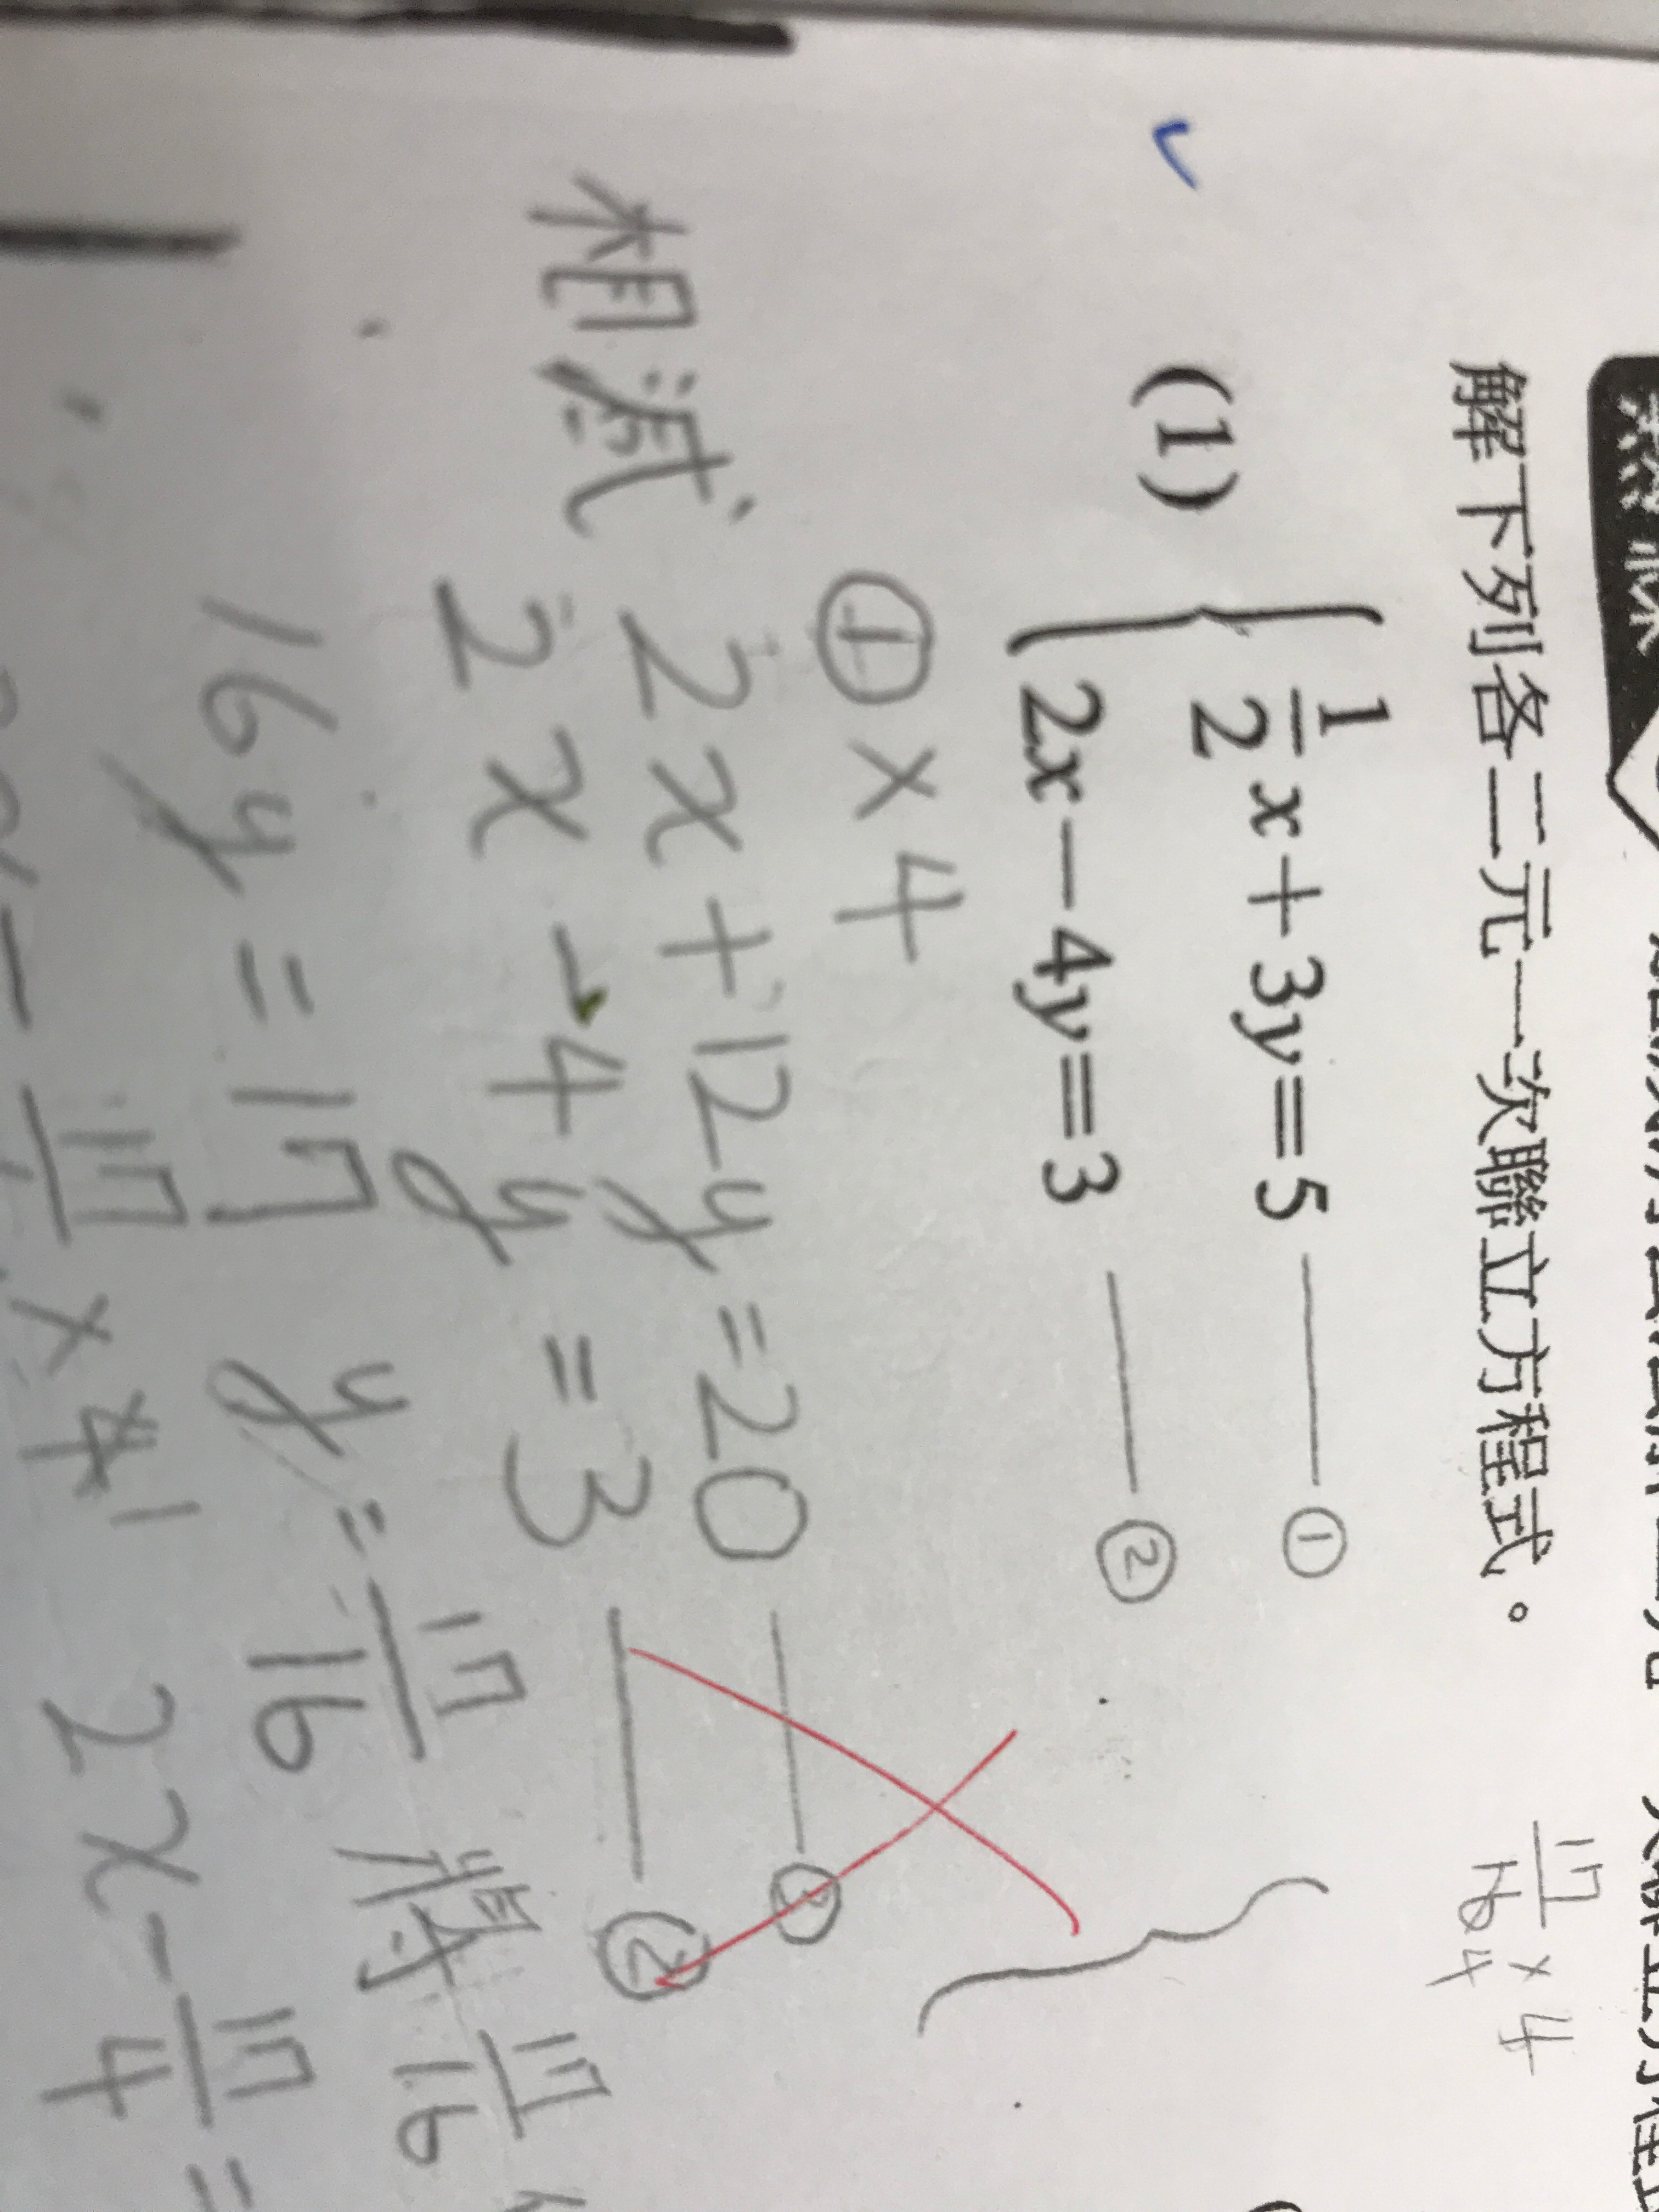 解下列各二元一次聯立方程式。
17/16 × 4
4
(1) { 1/2 x + 3y = 5 ——— ①
2x - 4y = 3 ——— ②
① × 4
相減 2x + 12y = 20
2x - 4y = 3 ——— ②
16y = 17 y = 17/16 將 17/16
17 × 4 1 2x - 17/4 =